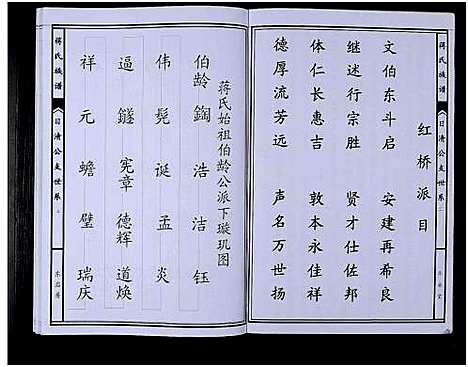 蒋氏族谱
日清公支世系
红桥派目
文伯东斗启 安建再希良
继述行宗胜 贤才仕佐邦
体仁长惠吉 敦本永佳祥
德厚流芳远 声名万世扬
蒋氏始祖伯龄公派下璇玑图
伯龄 鋾 浩 洁 钰
伟 髡 诞 孟 炎
逼 鐩 宪章 德辉 道焕
祥 元 蟾 璧 瑞庆
蒋氏族谱
日清公支世系